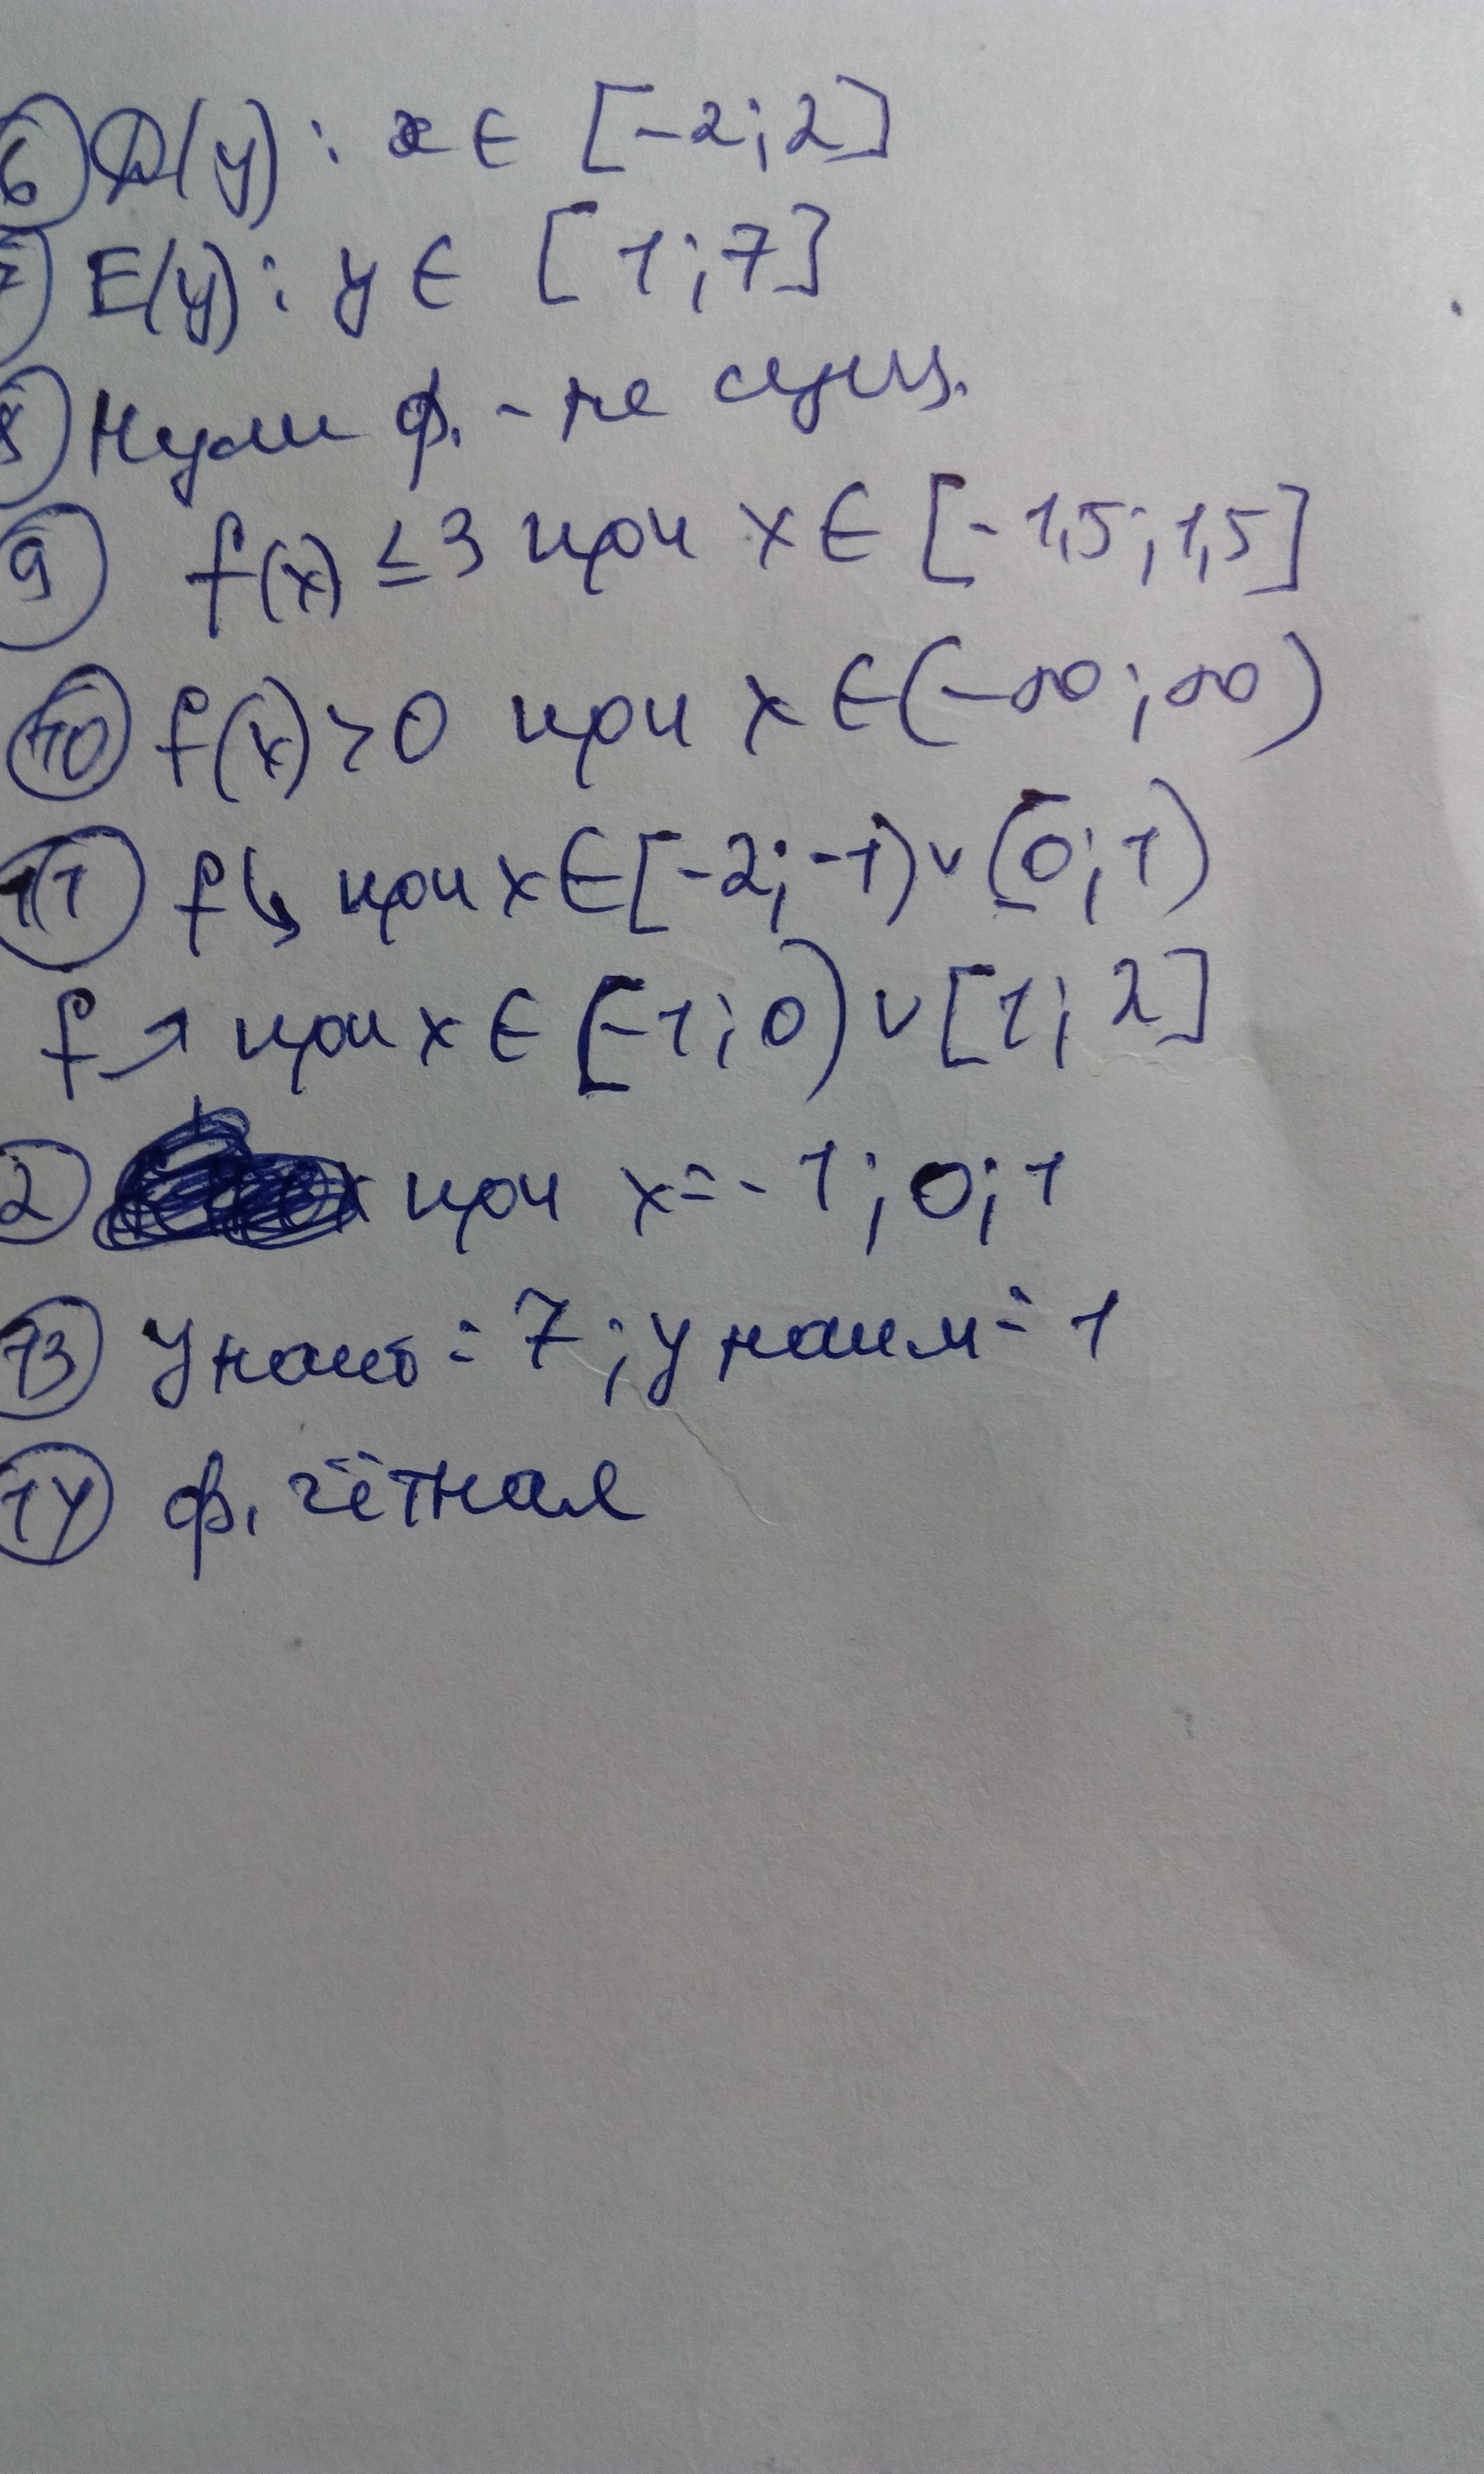 6 D(y): x ∈ [-2; 2]
7 E(y): y ∈ [1; 7]
8 Нули ф. - не сущ.
9 f(x) ≤ 3 при x ∈ [-1,5; 1,5]
10 f(x) > 0 при x ∈ (-∞; ∞)
11 f ↘ при x ∈ [-2; -1) ∨ [0; 1)
f ↗ при x ∈ [-1; 0) ∨ [1; 2]
2 при x = -1; 0; 1
13 y наиб = 7; y наим = 1
14 ф. чётная